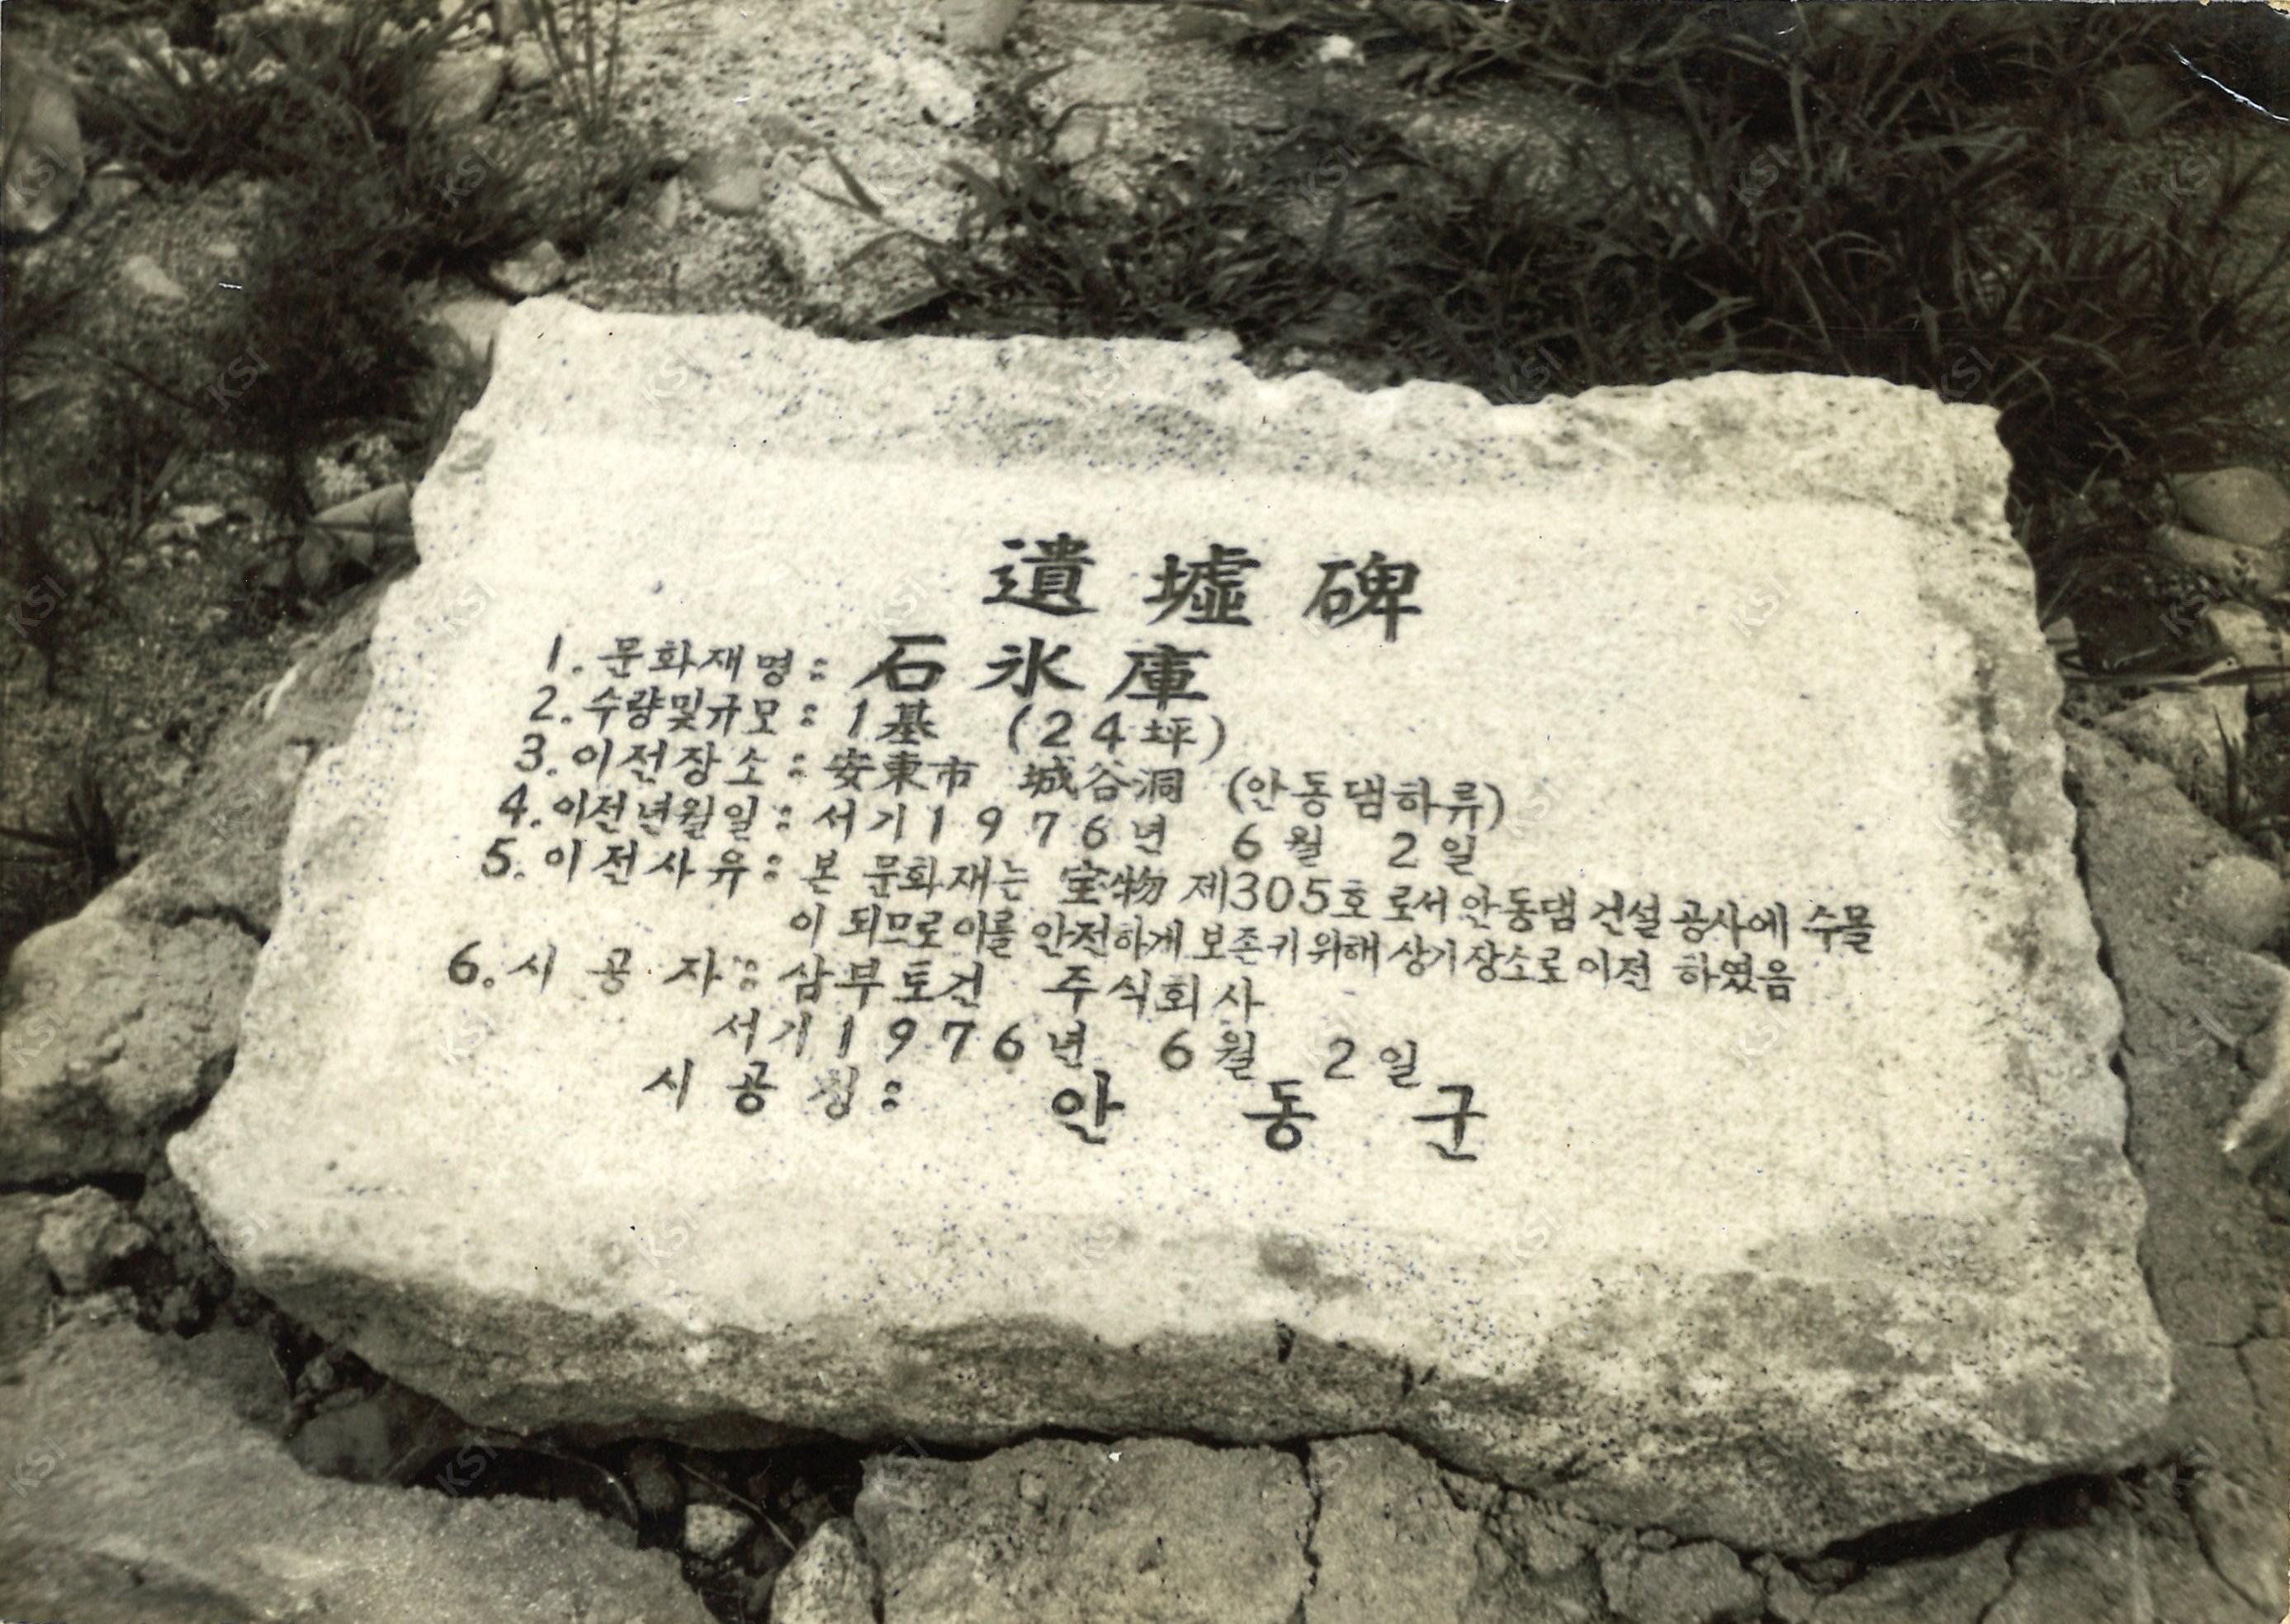 遺墟碑
1. 문화재명: 石氷庫
2. 수량및규모: 1基 (24坪)
3. 이전장소: 安東市 城谷洞 (안동댐하류)
4. 이전년월일: 서기1976년 6월 2일
5. 이전사유: 본 문화재는 宝物 제305호로서 안동댐 건설공사에 수몰
이 되므로 이를 안전하게 보존키위해 상기장소로 이전 하였음
6. 시공자: 삼부토건 주식회사
서기1976년 6월 2일
시공청: 안동군
KSI